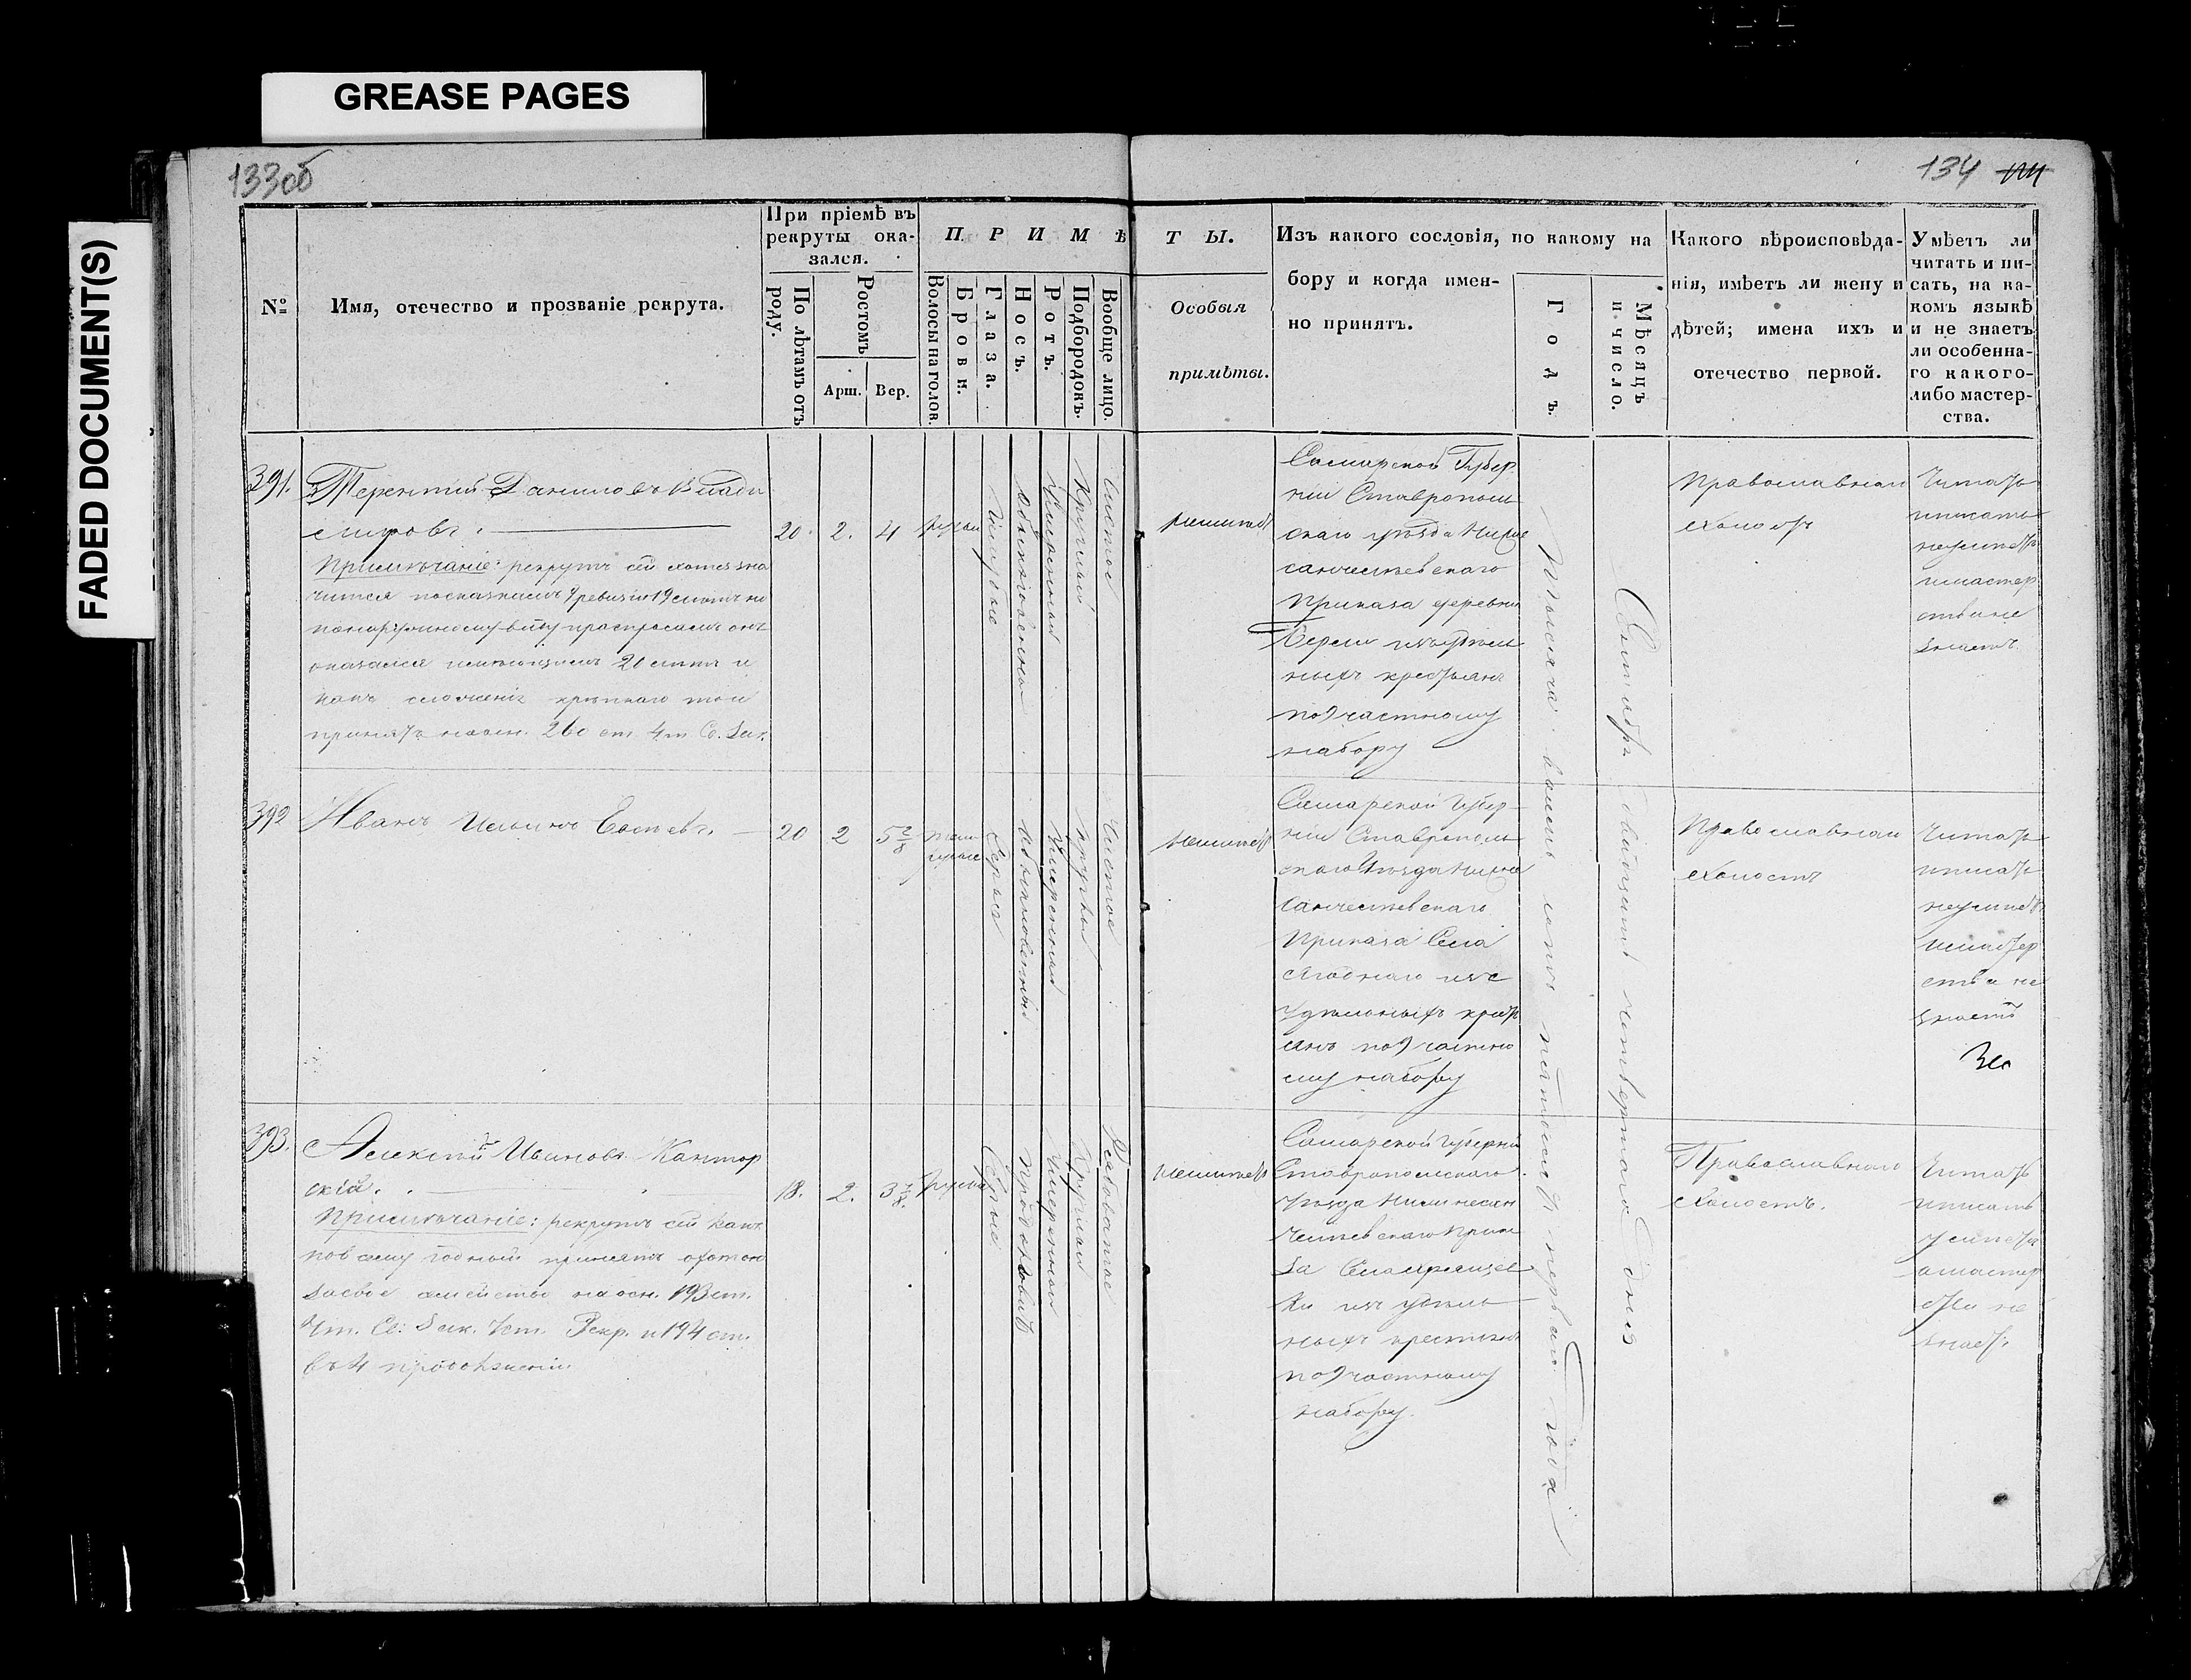 GREASE PAGES
FADED DOCUMENT(S)
133об
134
№
Имя, отечество и прозваніе рекрута.
При пріемѣ въ
рекруты ока-
зался.
По лѣтамъ отъ
роду.
Ростомъ
Арш.
Вер.
ПРИМѢТЫ.
Волосы на голов.
Брови.
Глаза.
Носъ.
Ротъ.
Подбородокъ.
Вообще лицо.
Особыя
примѣты.
Изъ какого сословія, по какому на
бору и когда имен-
но принятъ.
Годъ.
Мѣсяцъ
и число.
Какого вѣроисповѣда-
нія, имѣетъ ли жену и
дѣтей; имена ихъ и
отечество первой.
Умѣетъ ли
читать и пи-
сать, на ка-
комъ языкѣ
и не знаетъ
ли особенна-
го какого-
либо мастер-
ства.
391.
Терентій Даниловъ Влади
мировъ.
Примѣчаніе: рекрутъ сей хотя зна
чится по сказкамъ 9 ревизіи 19 лѣтъ но
по наружному виду и распросамъ онъ
оказался имѣющимъ 20 лѣтъ и
какъ сложенія крѣпкаго то и
принятъ на осн. 260 ст. 4 т. Св. Зак.
20.
2.
4
русыя
Голубые
обыкновенно
Умеренный
Круглый
Чистое
неимѣетъ
Самарской Губер
ніи Ставрополь
скаго уѣзда Нижне
санчелѣевскаго
Приказа деревни
изъ удѣль
ныхъ крестьянъ
по частному
набору
Тысяча восемь сотъ пятьдесятъ перваго года
Сентября двадцать четвертаго дня
Православнаго
холостъ
Читать
писать
неумѣетъ
и мастер
ства не
знаетъ.
392
Иванъ Ильинъ Евсѣевъ.
20
2
5 2/8
темно
русые
Серые
Обыкновенный
Умеренный
Круглый
Чистое
неимѣетъ
Самарской Губер
ніи Ставрополь
скаго Уѣзда Нижне
санчелѣевскаго
Приказа Села
Ягоднаго изъ
Удѣльныхъ кресть
янъ по частно
му набору
Православнаго
холостъ
Читать
писать
неумѣетъ
и мастер
ства не
знаетъ
393.
Алексѣй Ивановъ Кантор
скій.
Примѣчаніе: рекрутъ сей какъ
по всему годный принятъ
за свое семейство на осн. 193 ст.
4 т. Св: Зак. Уст. Рекр. и 194 ст.
въ 4 продолженіи.
18.
2.
3 7/8.
русые
Серые
Продолговатъ
Умеренный
Круглый
Рябоватое
неимѣетъ
Самарской Губерніи
Ставропольскаго
Уѣзда Нижнесан
челѣевскаго Прика
за Села
ки изъ удѣль
ныхъ крестьянъ
по частному
набору.
Православнаго
холостъ.
Читать
писать
умѣетъ
а мастер
ства не
знаетъ